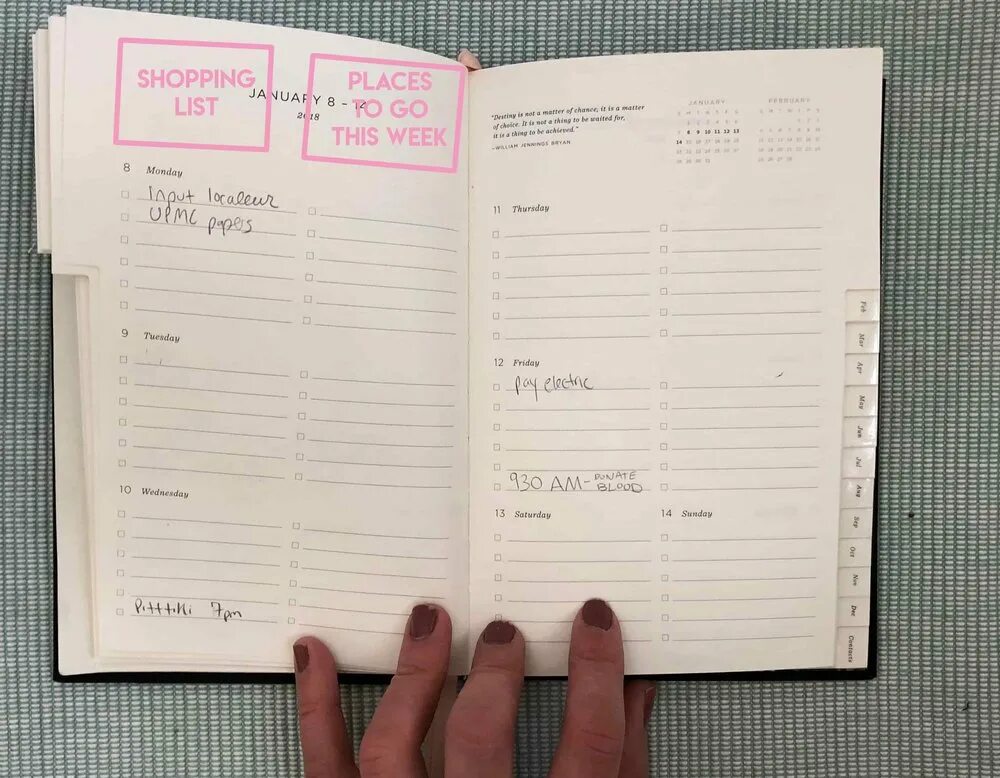 SHOPPING
LIST
PLACES
TO GO
THIS WEEK
JANUARY 8 - 14
2018
8 Monday
Input localeur
UPMC papers
9 Tuesday
10 Wednesday
7pm
"Destiny is not a matter of chance, it is a matter
of choice. It is not a thing to be waited for,
it is a thing to be achieved."
–WILLIAM JENNINGS BRYAN
JANUARY
FEBRUARY
11 Thursday
12 Friday
pay electric
930 AM- DONATE
BLOOD
13 Saturday
14 Sunday
Feb
Mar
Apr
May
Jun
Jul
Aug
Sep
Oct
Nov
Dec
Contacts